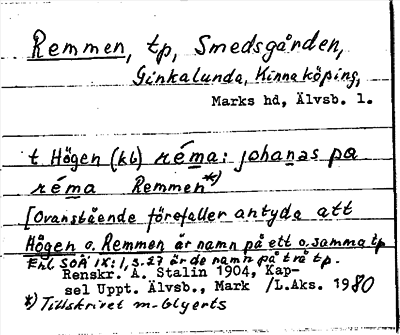 Remmen, tp, Smedsgården,
Ginkalunda, Kinna köping,
Marks hd, Älvsb. l.
t Högen (kb) réma: johanas pa
réma Remmen*)
[Ovanstående förefaller antyda att
Högen o. Remmen är namn på ett o. samma tp
Enl SOÄ IX:1, s. 27 är de namn på två tp.
Renskr. A. Stalin 1904, Kap-
sel Uppt. Älvsb., Mark /L.Aks. 1980
*) Tillskrivet m. blyerts